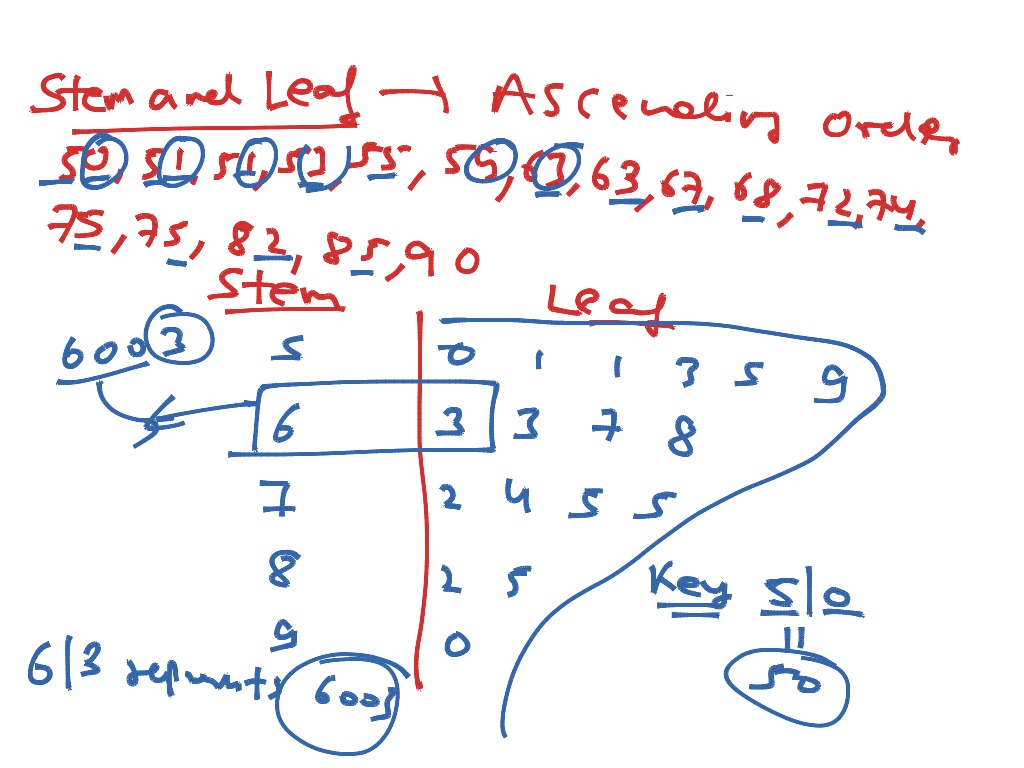 Stem and Leaf → Ascending order
50, 51, 51, 53, 55, 59, 63, 63, 67, 68, 72, 74,
75, 75, 82, 85, 90
Stem Leaf
6003 5 0 1 1 3 5 9
6 3 3 7 8
7 2 4 5 5
8 2 5
Key 5|0
9 0
= 50
6|3 represents 6003